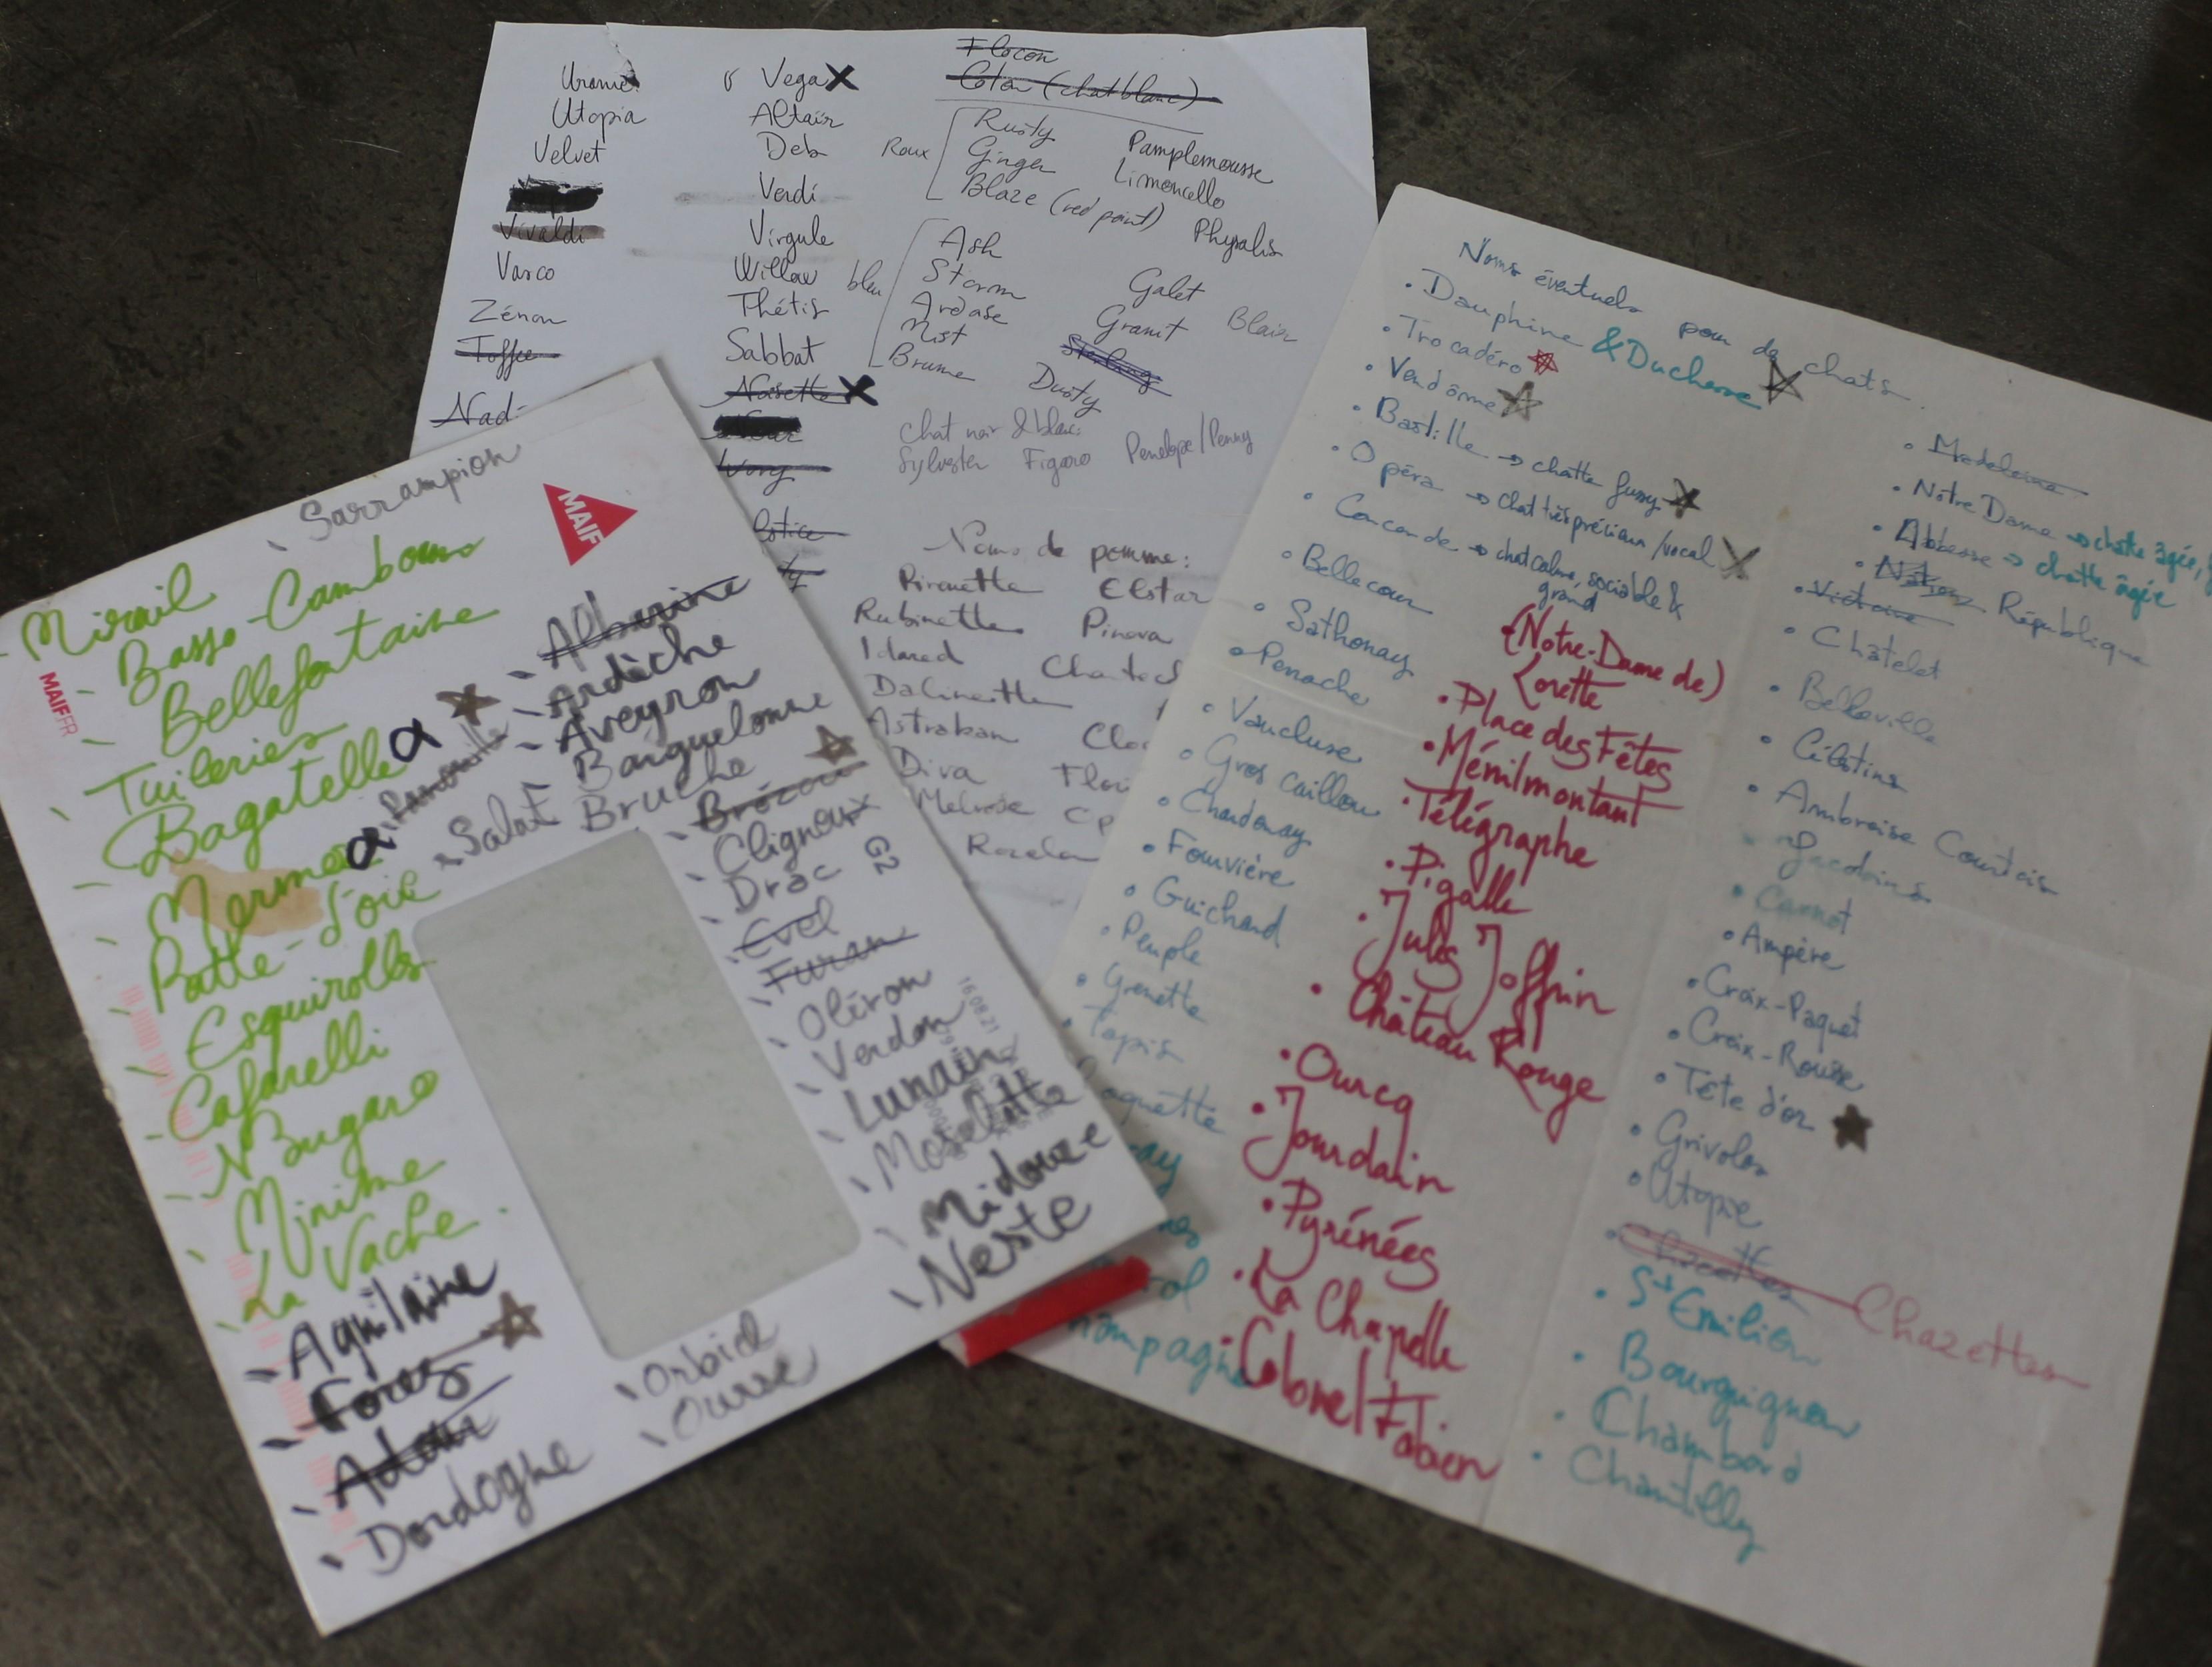 Utopia
Velvet
Vivaldi
Vasco
Zénon
Toffee
Vega
Altaïr
Deb
Verdi
Virgule
Willow
Thétis
Sabbat
Noisette
Ivory
Flocon
Coton (chat blanc)
Roux
Rusty
Ginger
Blaze (red point)
Pamplemousse
Limoncello
Physalis
bleu
Ash
Storm
Ardoise
Mist
Brume
Galet
Granit
Blair
Sterling
Dusty
Chat noir & blanc:
Sylvester Figaro Penelope/Penny
Noms de pomme:
Pirouette Elstar
Rubinette Pinova
Idared
Dalinette
Astrakan
Diva
Melrose
Noms éventuels pour des chats
• Dauphine & Duchesse
• Trocadéro
• Vendôme
• Bastille → chatte fuzzy
• Opéra → chat très précieux/vocal
• Concorde → chat calme, sociable &
grand
• Bellecour
• Sathonay
• Perrache
• Vaucluse
• Gros caillou
• Chardonay
• Fourvière
• Guichard
• Peuple
• Grenette
• Tapis
(Notre-Dame de)
Lorette
• Place des Fêtes
• Ménilmontant
• Télégraphe
• Pigalle
• Jules Joffrin
• Château Rouge
• Ourcq
• Jourdain
• Pyrénées
• La Chapelle
• Colonel Fabien
• Madeleine
• Notre Dame → chatte âgée,
• Abbesse → chatte âgée
• Nation République
• Victoire
• Châtelet
• Belleville
• Célestins
• Ambroise Courtois
• Jacobins
• Carnot
• Ampère
• Croix-Paquet
• Croix-Rousse
• Tête d'or
• Grivolas
• Utopie
• Charettes Chazettes
• St Emilion
• Bourguignon
• Chambord
• Chantilly
MAIF
MAIF.FR
- Sarrampion
- Mirail
- Basso-Cambo
- Bellefontaine
- Tuileries
- Bagatelle
- Mermoz
- Patte-d'oie
- Esquirolles
- Cafarelli
- Bugaro
- Minime
- La Vache
- Aquilaine
- Forez
- Adour
- Dordogne
- Ardèche
- Aveyron
- Barguelonne
Bruche
- Salat
- Brézou
Clignoux
G2
- Drac
- Evel
- Furan
- Oléron
- Verdon
- Lunain
- Moselotte
- Midouze
- Neste
- Orbiel
- Ourse
16.08.21